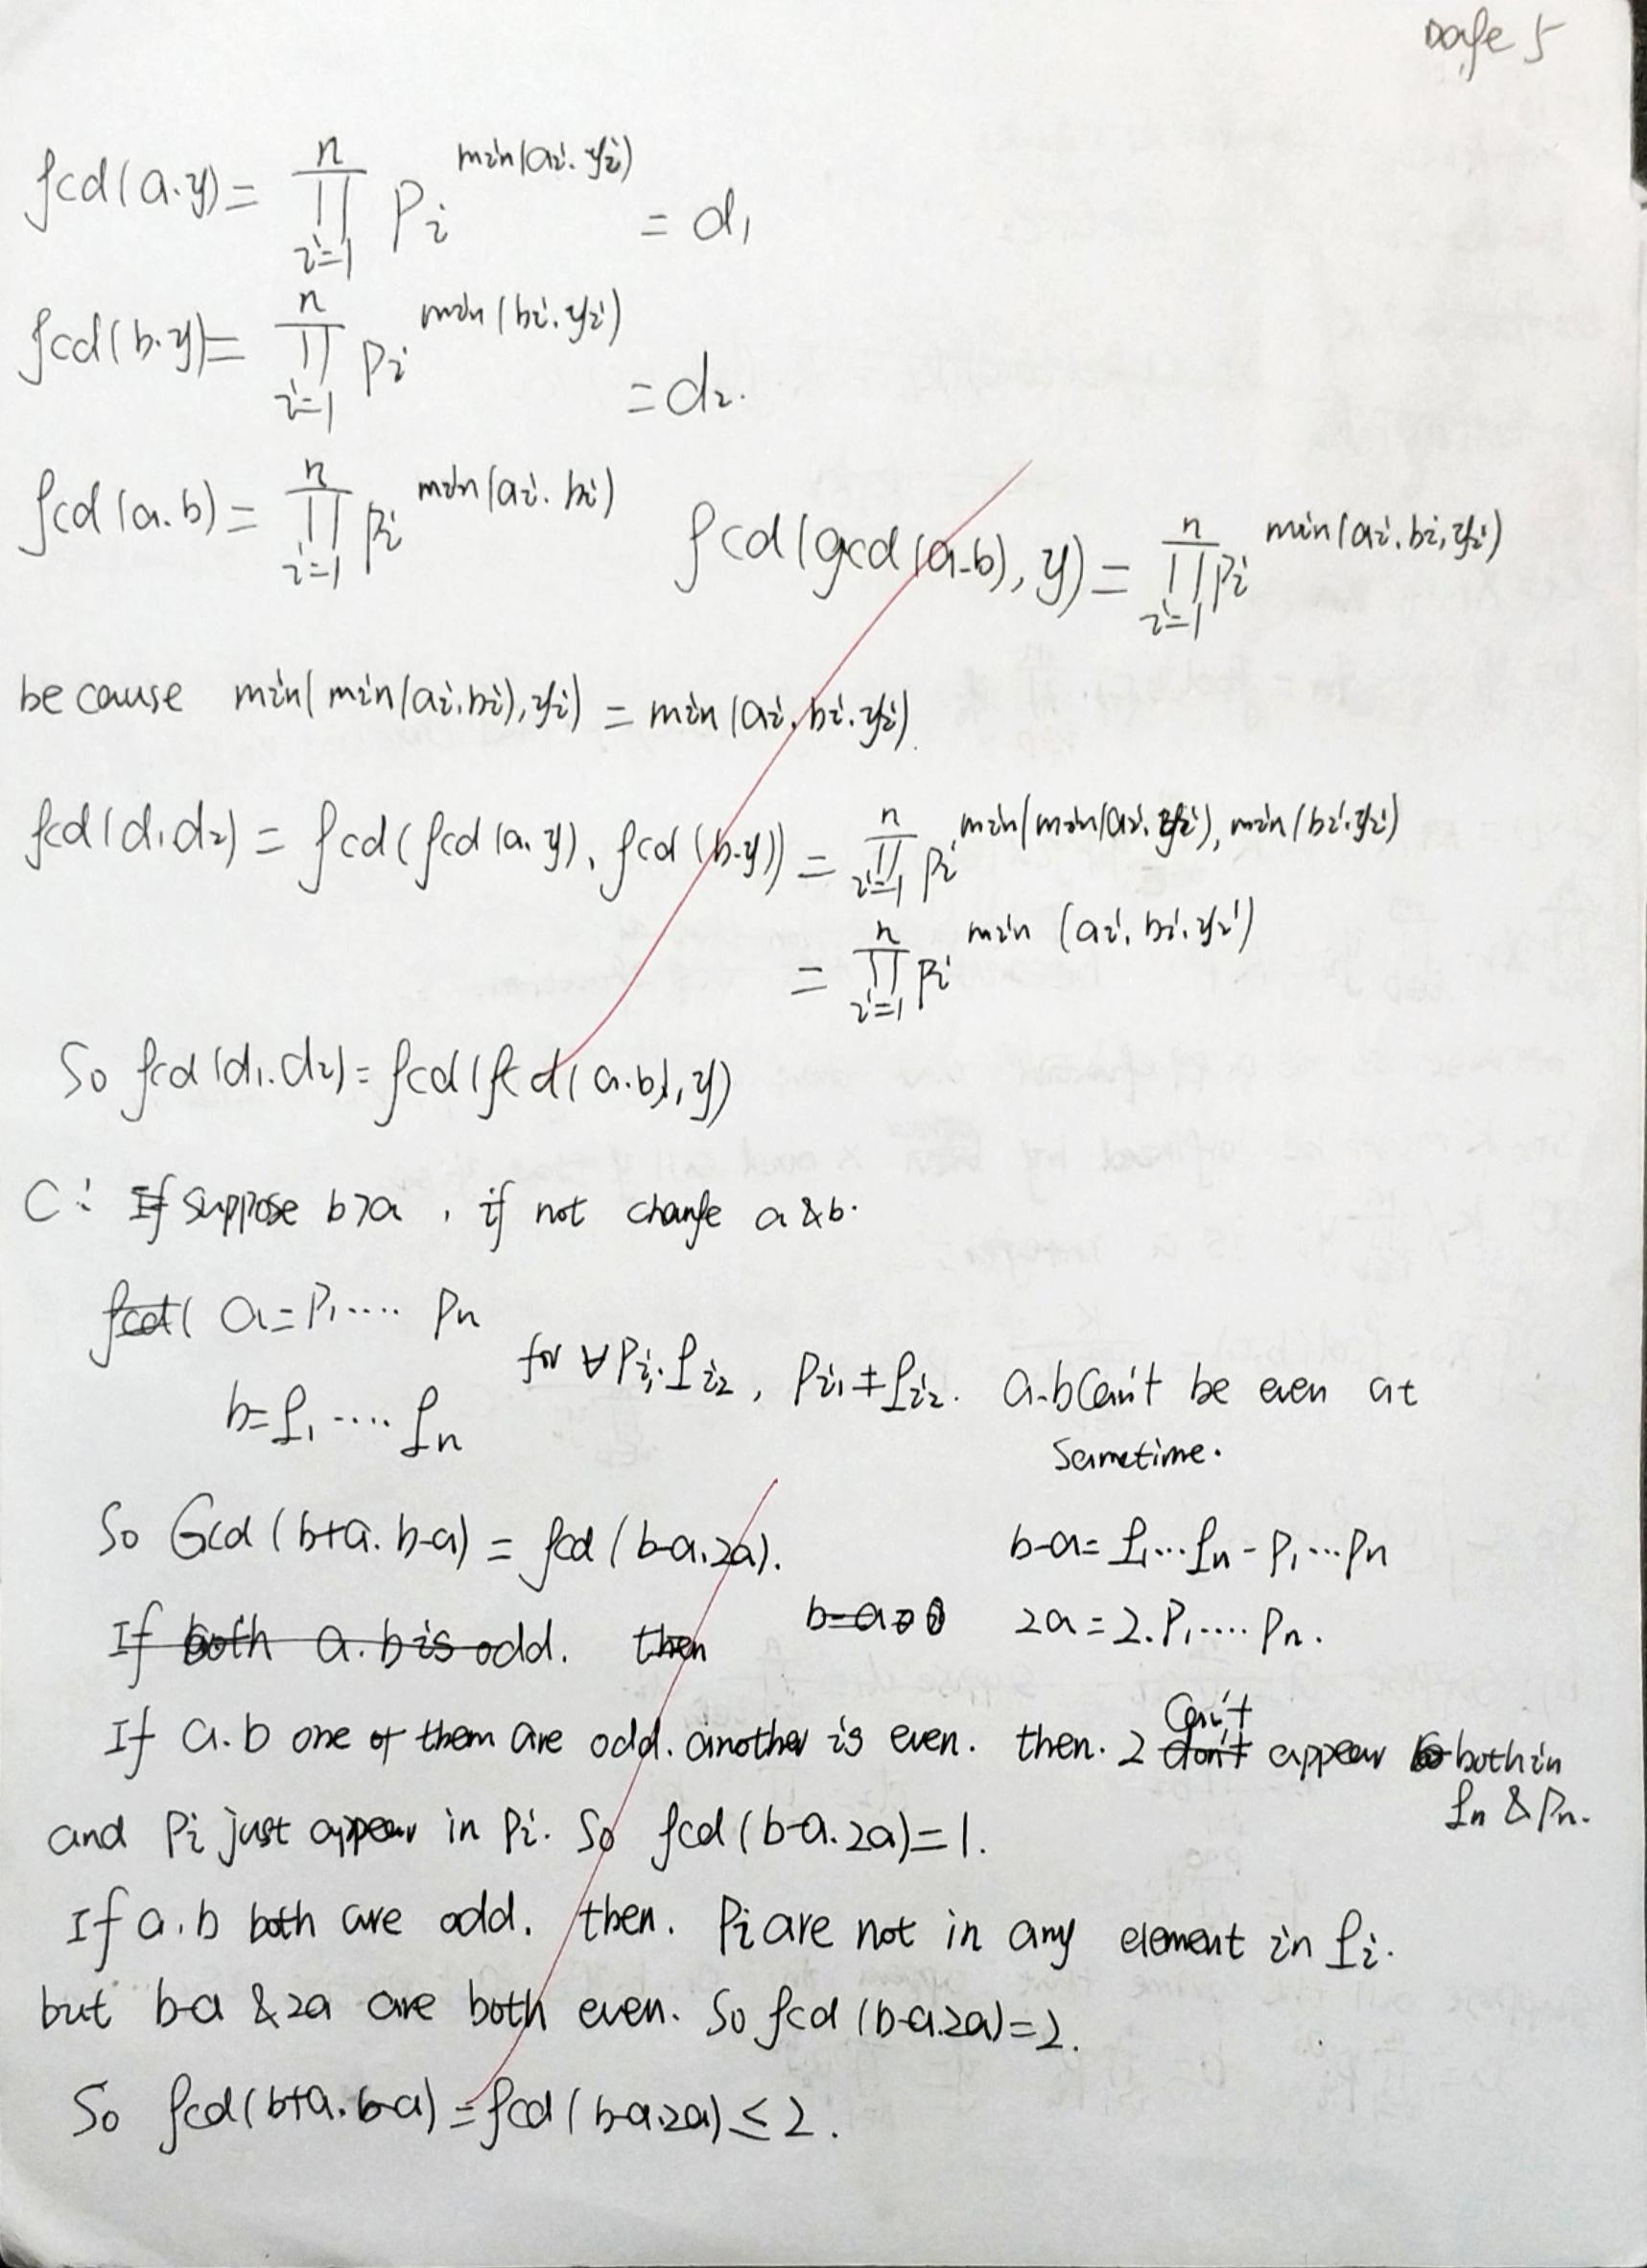 Page 5
gcd(a.y) = ∏_{i=1}^{n} P_i^{min(ai.yi)} = d₁
gcd(b.y) = ∏_{i=1}^{n} P_i^{min(bi.yi)} = d₂.
gcd(a.b) = ∏_{i=1}^{n} P_i^{min(ai.bi)} gcd(gcd(a.b), y) = ∏_{i=1}^{n} P_i^{min(ai.bi,yi)}
because min(min(ai.bi),yi) = min(ai.bi.yi).
gcd(d₁d₂) = gcd(gcd(a.y), gcd(b.y)) = ∏_{i=1}^{n} P_i^{min(min(ai.yi), min(bi.yi)}
= ∏_{i=1}^{n} P_i^{min (ai.bi.yi)}
So gcd(d₁.d₂) = gcd(gcd(a.b),y)
C: If suppose b>a, if not change a&b.
gcd( a=P₁.... Pn
b=q₁.... qn
for ∀P_{i₁}.q_{i₂}, P_{i₁}≠q_{i₂}. a.b can't be even at
sametime.
So Gcd(b+a.b-a) = gcd(b-a.2a).
b-a= q₁...qn - P₁...Pn
If both a.b is odd. then b-a
2a=2.P₁.... Pn.
If a.b one of them are odd. another is even. then. 2 don't can't appear both in
qn & Pn.
and Pi just appear in Pi. So gcd(b-a.2a)=1.
If a.b both are odd. then. Pi are not in any element in qi.
but b-a & 2a are both even. So gcd(b-a.2a)=2.
So gcd(b+a.b-a) = gcd(b-a.2a) ≤ 2.